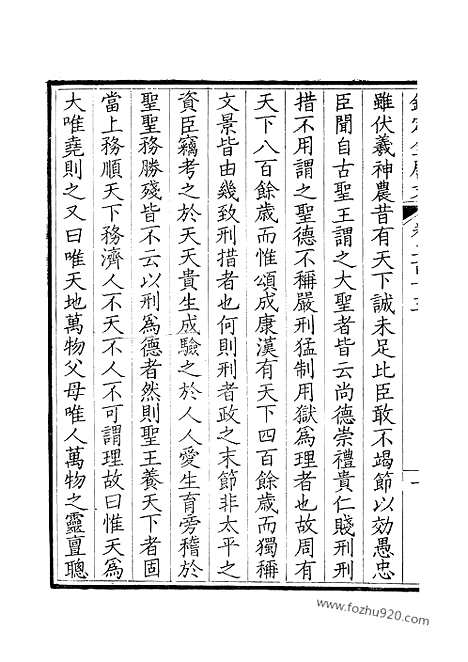 雖伏羲神農昔有天下誠未足比臣敢不竭節以効愚忠
臣聞自古聖王謂之大聖者皆云尚德崇禮貴仁賤刑刑
措不用謂之聖德不稱嚴刑猛制用獄為理者也故周有
天下八百餘歲而惟頌成康漢有天下四百餘歲而獨稱
文景皆由幾致刑措者也何則刑者政之末節非太平之
資臣竊考之於天天貴生成驗之於人人愛生育旁稽於
聖聖務勝殘皆不云以刑為德者然則聖王養天下者固
當上務順天下務濟人不天不人不可謂理故曰惟天為
大唯堯則之又曰唯天地萬物父母唯人萬物之靈亶聰
www.fozhu920.com